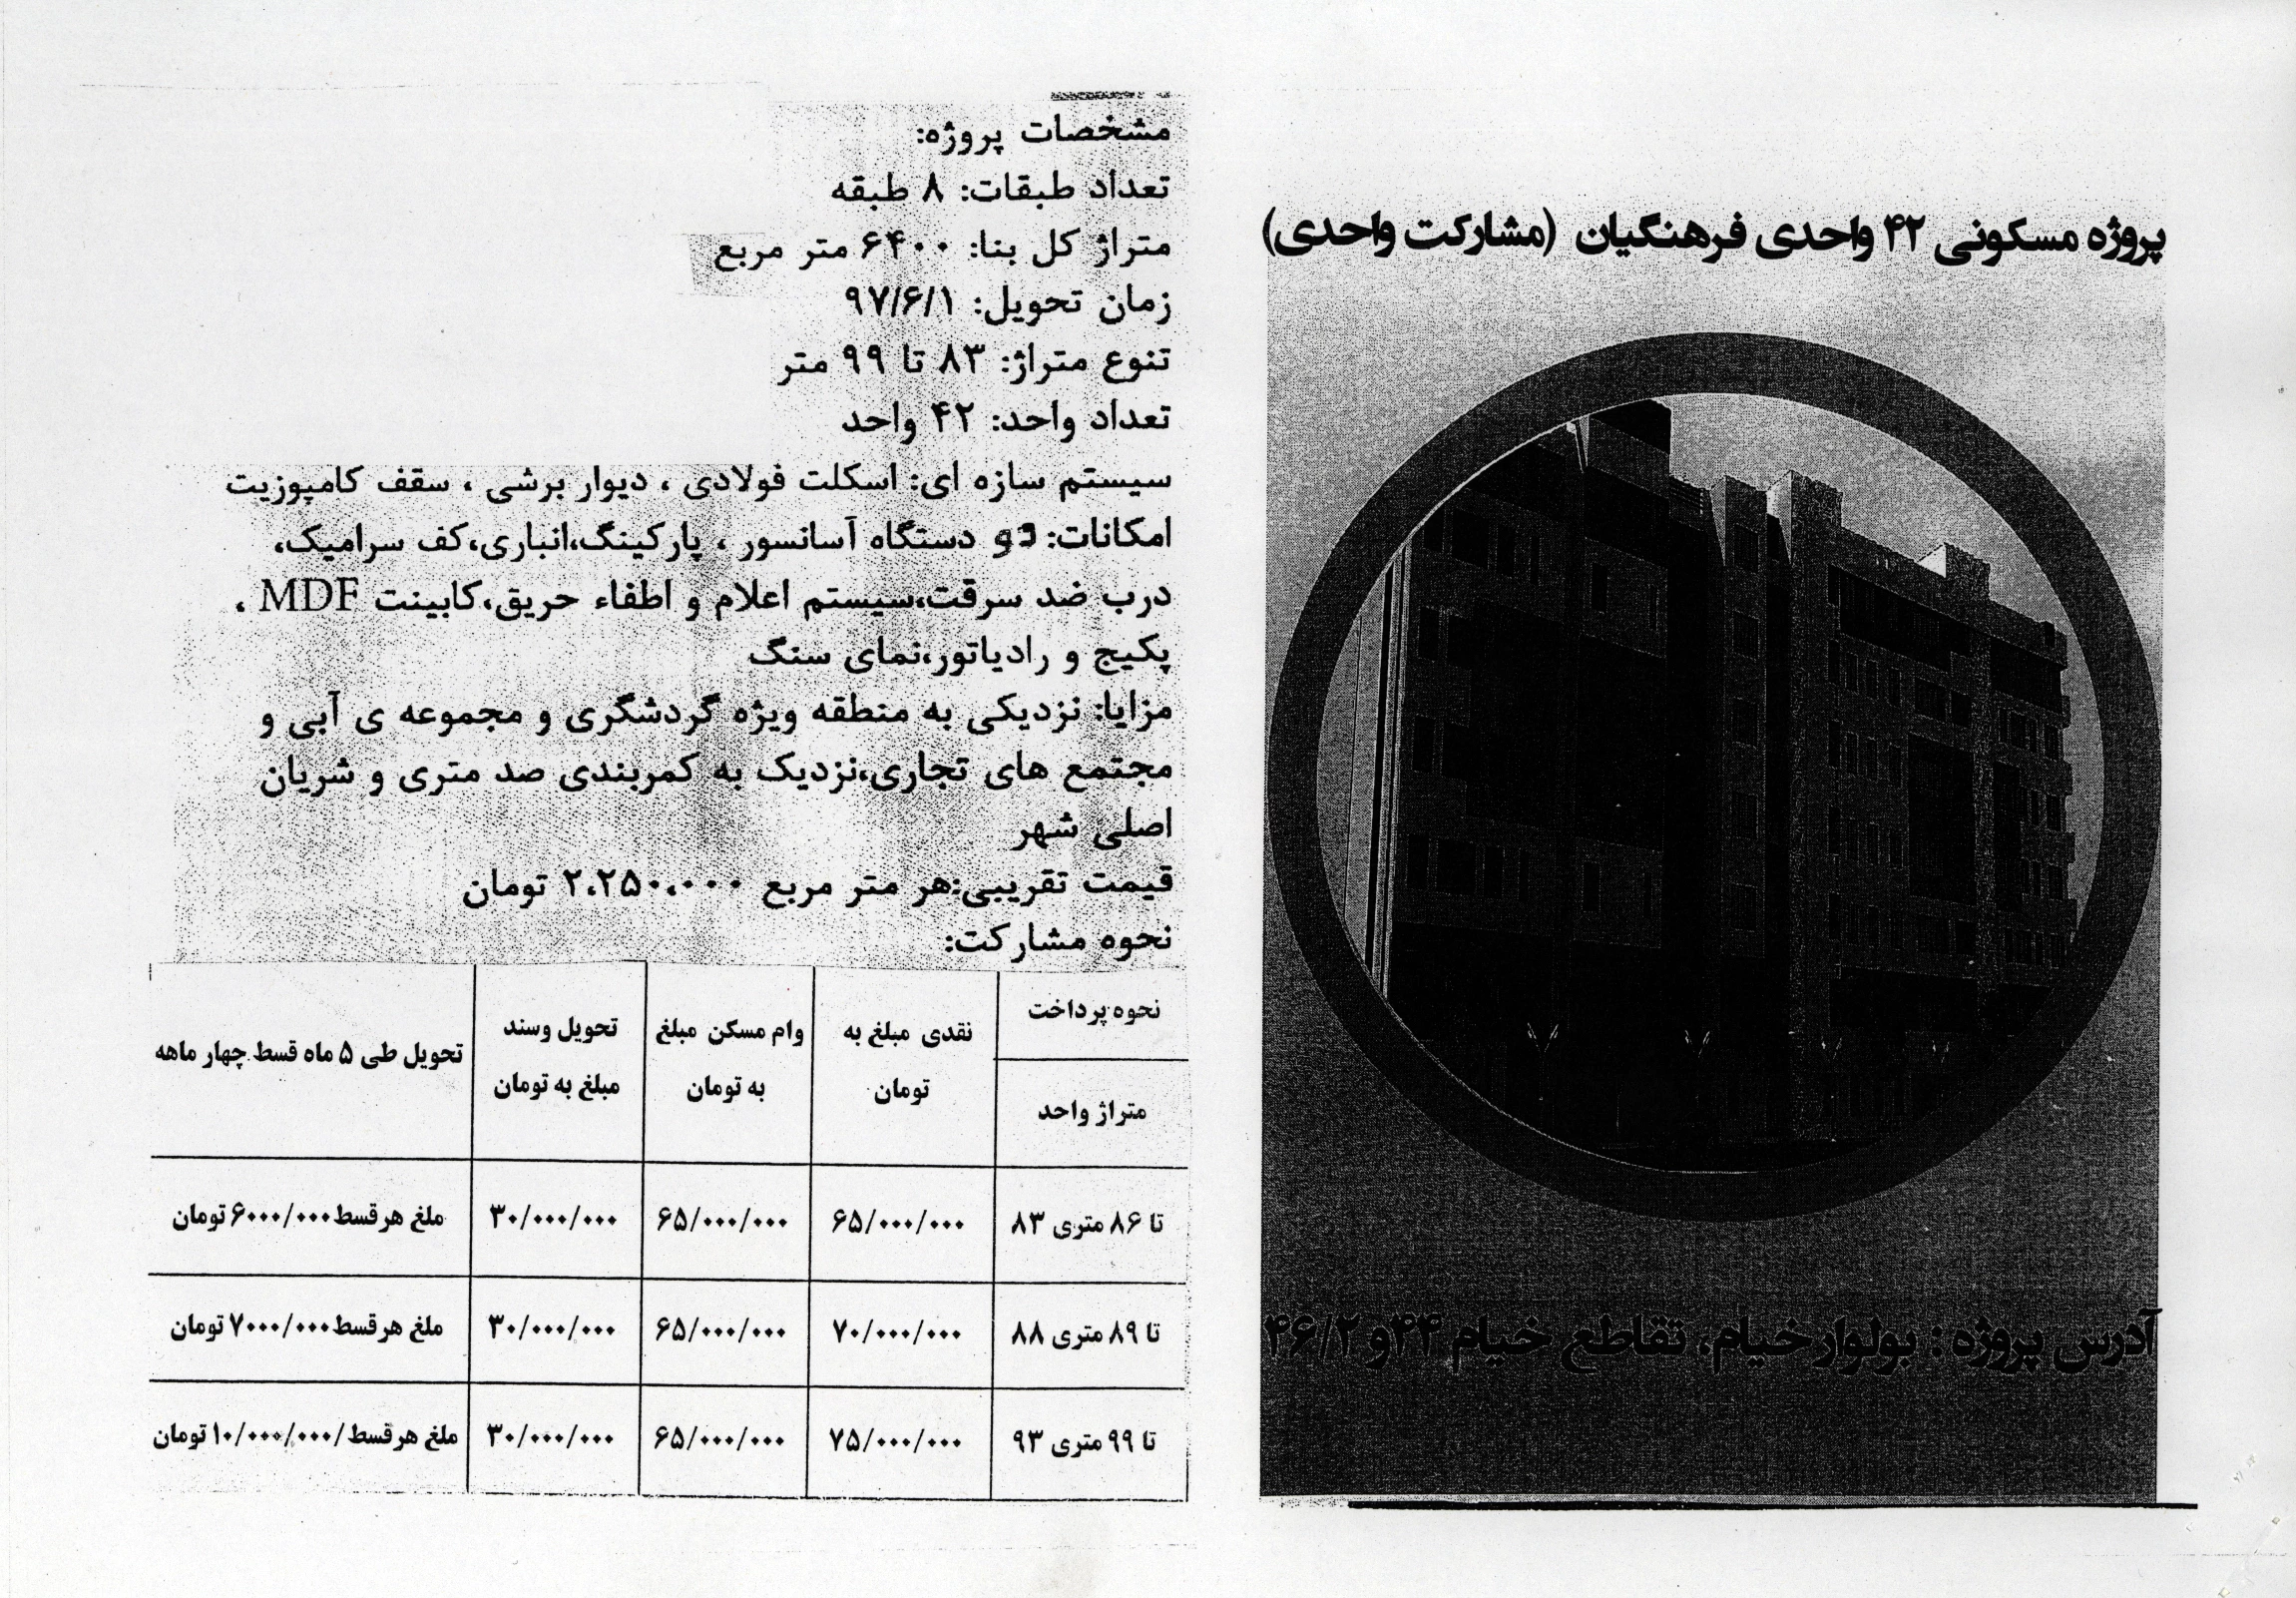 پروژه مسکونی ۴۲ واحدی فرهنگیان (مشارکت واحدی)
آدرس پروژه : بولوار خیام، تقاطع خیام ۴۴ و ۴۶/۲
مشخصات پروژه:
تعداد طبقات: ۸ طبقه
متراژ کل بنا: ۶۴۰۰ متر مربع
زمان تحویل: ۹۷/۶/۱
تنوع متراژ: ۸۳ تا ۹۹ متر
تعداد واحد: ۴۲ واحد
سیستم سازه ای: اسکلت فولادی ، دیوار برشی ، سقف کامپوزیت
امکانات: دو دستگاه آسانسور ، پارکینگ،انباری،کف سرامیک،
درب ضد سرقت،سیستم اعلام و اطفاء حریق،کابینت MDF ،
پکیج و رادیاتور،نمای سنگ
مزایا: نزدیکی به منطقه ویژه گردشگری و مجموعه ی آبی و
مجتمع های تجاری،نزدیک به کمربندی صد متری و شریان
اصلی شهر
قیمت تقریبی:هر متر مربع ۲،۲۵۰،۰۰۰ تومان
نحوه مشارکت:
نحوه پرداخت
متراژ واحد
نقدی مبلغ به
تومان
وام مسکن مبلغ
به تومان
تحویل وسند
مبلغ به تومان
تحویل طی ۵ ماه قسط چهار ماهه
تا ۸۶ متری ۸۳ ۶۵/۰۰۰/۰۰۰ ۶۵/۰۰۰/۰۰۰ ۳۰/۰۰۰/۰۰۰ ملغ هر قسط ۶۰۰۰/۰۰۰ تومان
تا ۸۹ متری ۸۸ ۷۰/۰۰۰/۰۰۰ ۶۵/۰۰۰/۰۰۰ ۳۰/۰۰۰/۰۰۰ ملغ هر قسط ۷۰۰۰/۰۰۰ تومان
تا ۹۹ متری ۹۳ ۷۵/۰۰۰/۰۰۰ ۶۵/۰۰۰/۰۰۰ ۳۰/۰۰۰/۰۰۰ ملغ هر قسط /۱۰/۰۰۰/۰۰۰ تومان